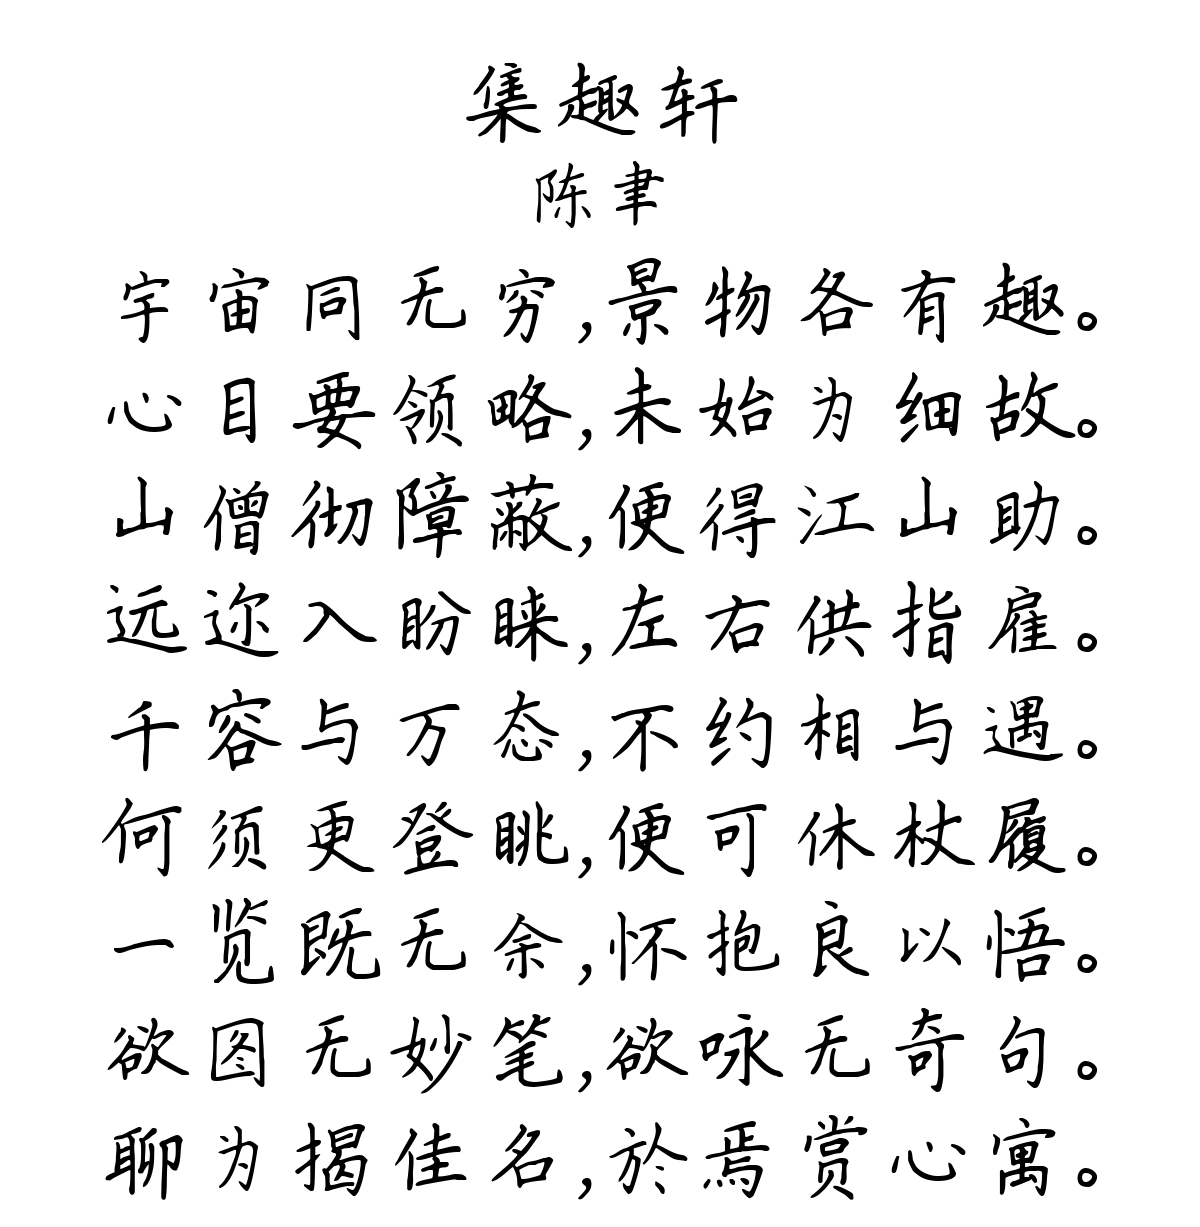 集趣轩
陈聿
宇宙同无穷,景物各有趣。
心目要领略,未始为细故。
山僧彻障蔽,便得江山助。
远迩入盼睐,左右供指雇。
千容与万态,不约相与遇。
何须更登眺,便可休杖履。
一览既无余,怀抱良以悟。
欲图无妙笔,欲咏无奇句。
聊为揭佳名,於焉赏心寓。